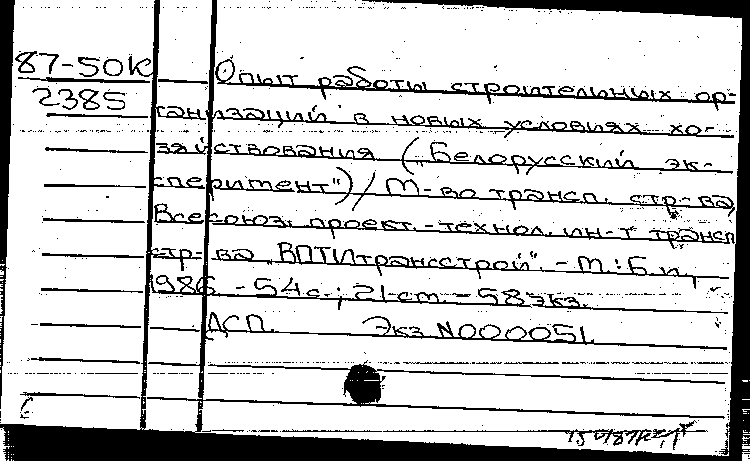 87-50К
2385
Опыт работы строительных ор-
ганизаций в новых условиях хо-
зяйствования („Белорусский эк-
сперимент")/ М-во трансп. стр-ва,
Всесоюз. проект.-технол. ин-т трансп.
стр-ва „ВПТИтрансстрой". - М.: Б.и.,
1986. - 54 с.; 21 см. - 58 экз.
ДСП. Экз N000051.
6